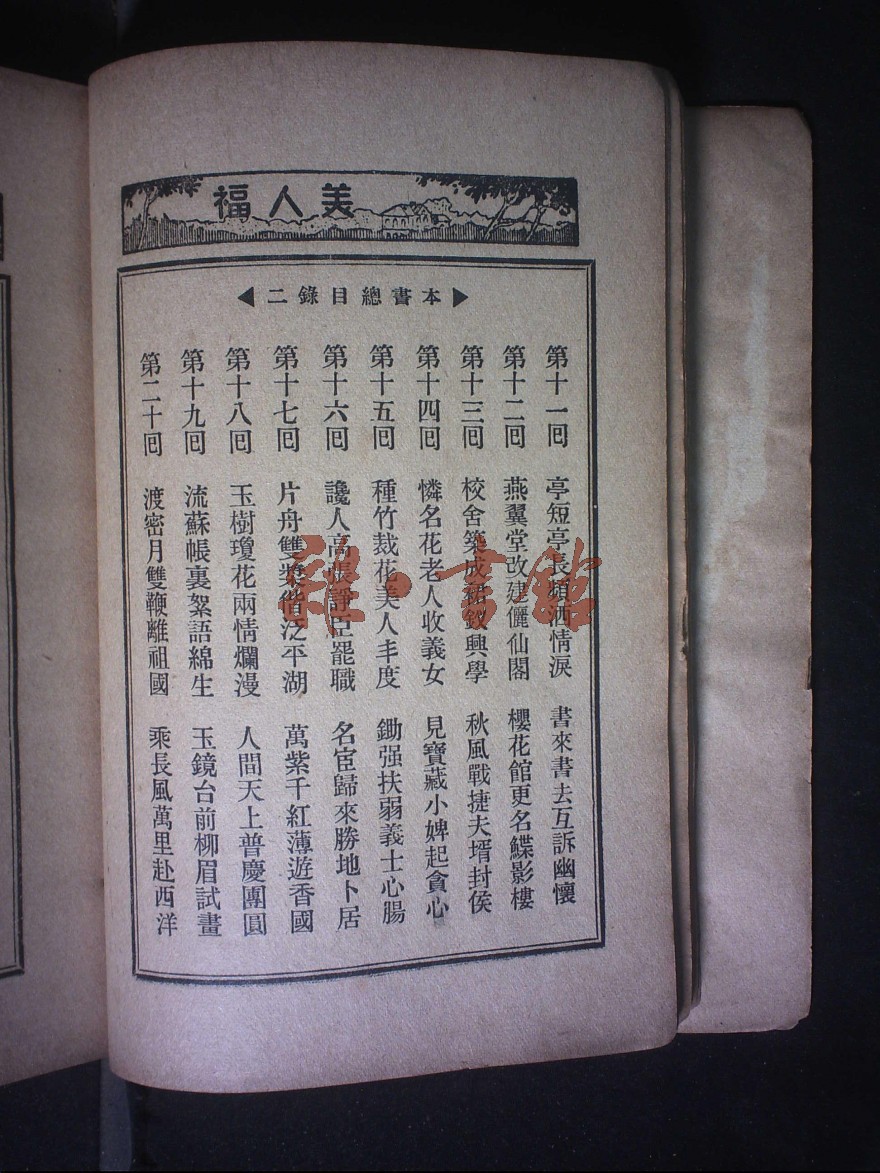 美人福
本書總目錄二
第十一回 亭短亭長頻洒情淚 書來書去互訴幽懷
第十二回 燕翼堂改建儷仙閣 櫻花館更名鰈影樓
第十三回 校舍築成裙釵興學 秋風戰捷夫壻封侯
第十四回 憐名花老人收義女 見寶藏小婢起貪心
第十五回 種竹裁花美人丰度 鋤强扶弱義士心腸
第十六回 讒人高張諍臣罷職 名宦歸來勝地卜居
第十七回 片舟雙槳偕泛平湖 萬紫千紅薄遊香國
第十八回 玉樹瓊花兩情爛漫 人間天上普慶團圓
第十九回 流蘇帳裏絮語綿生 玉鏡台前柳眉試畫
第二十回 渡密月雙鞭離祖國 乘長風萬里赴西洋
雜·書館